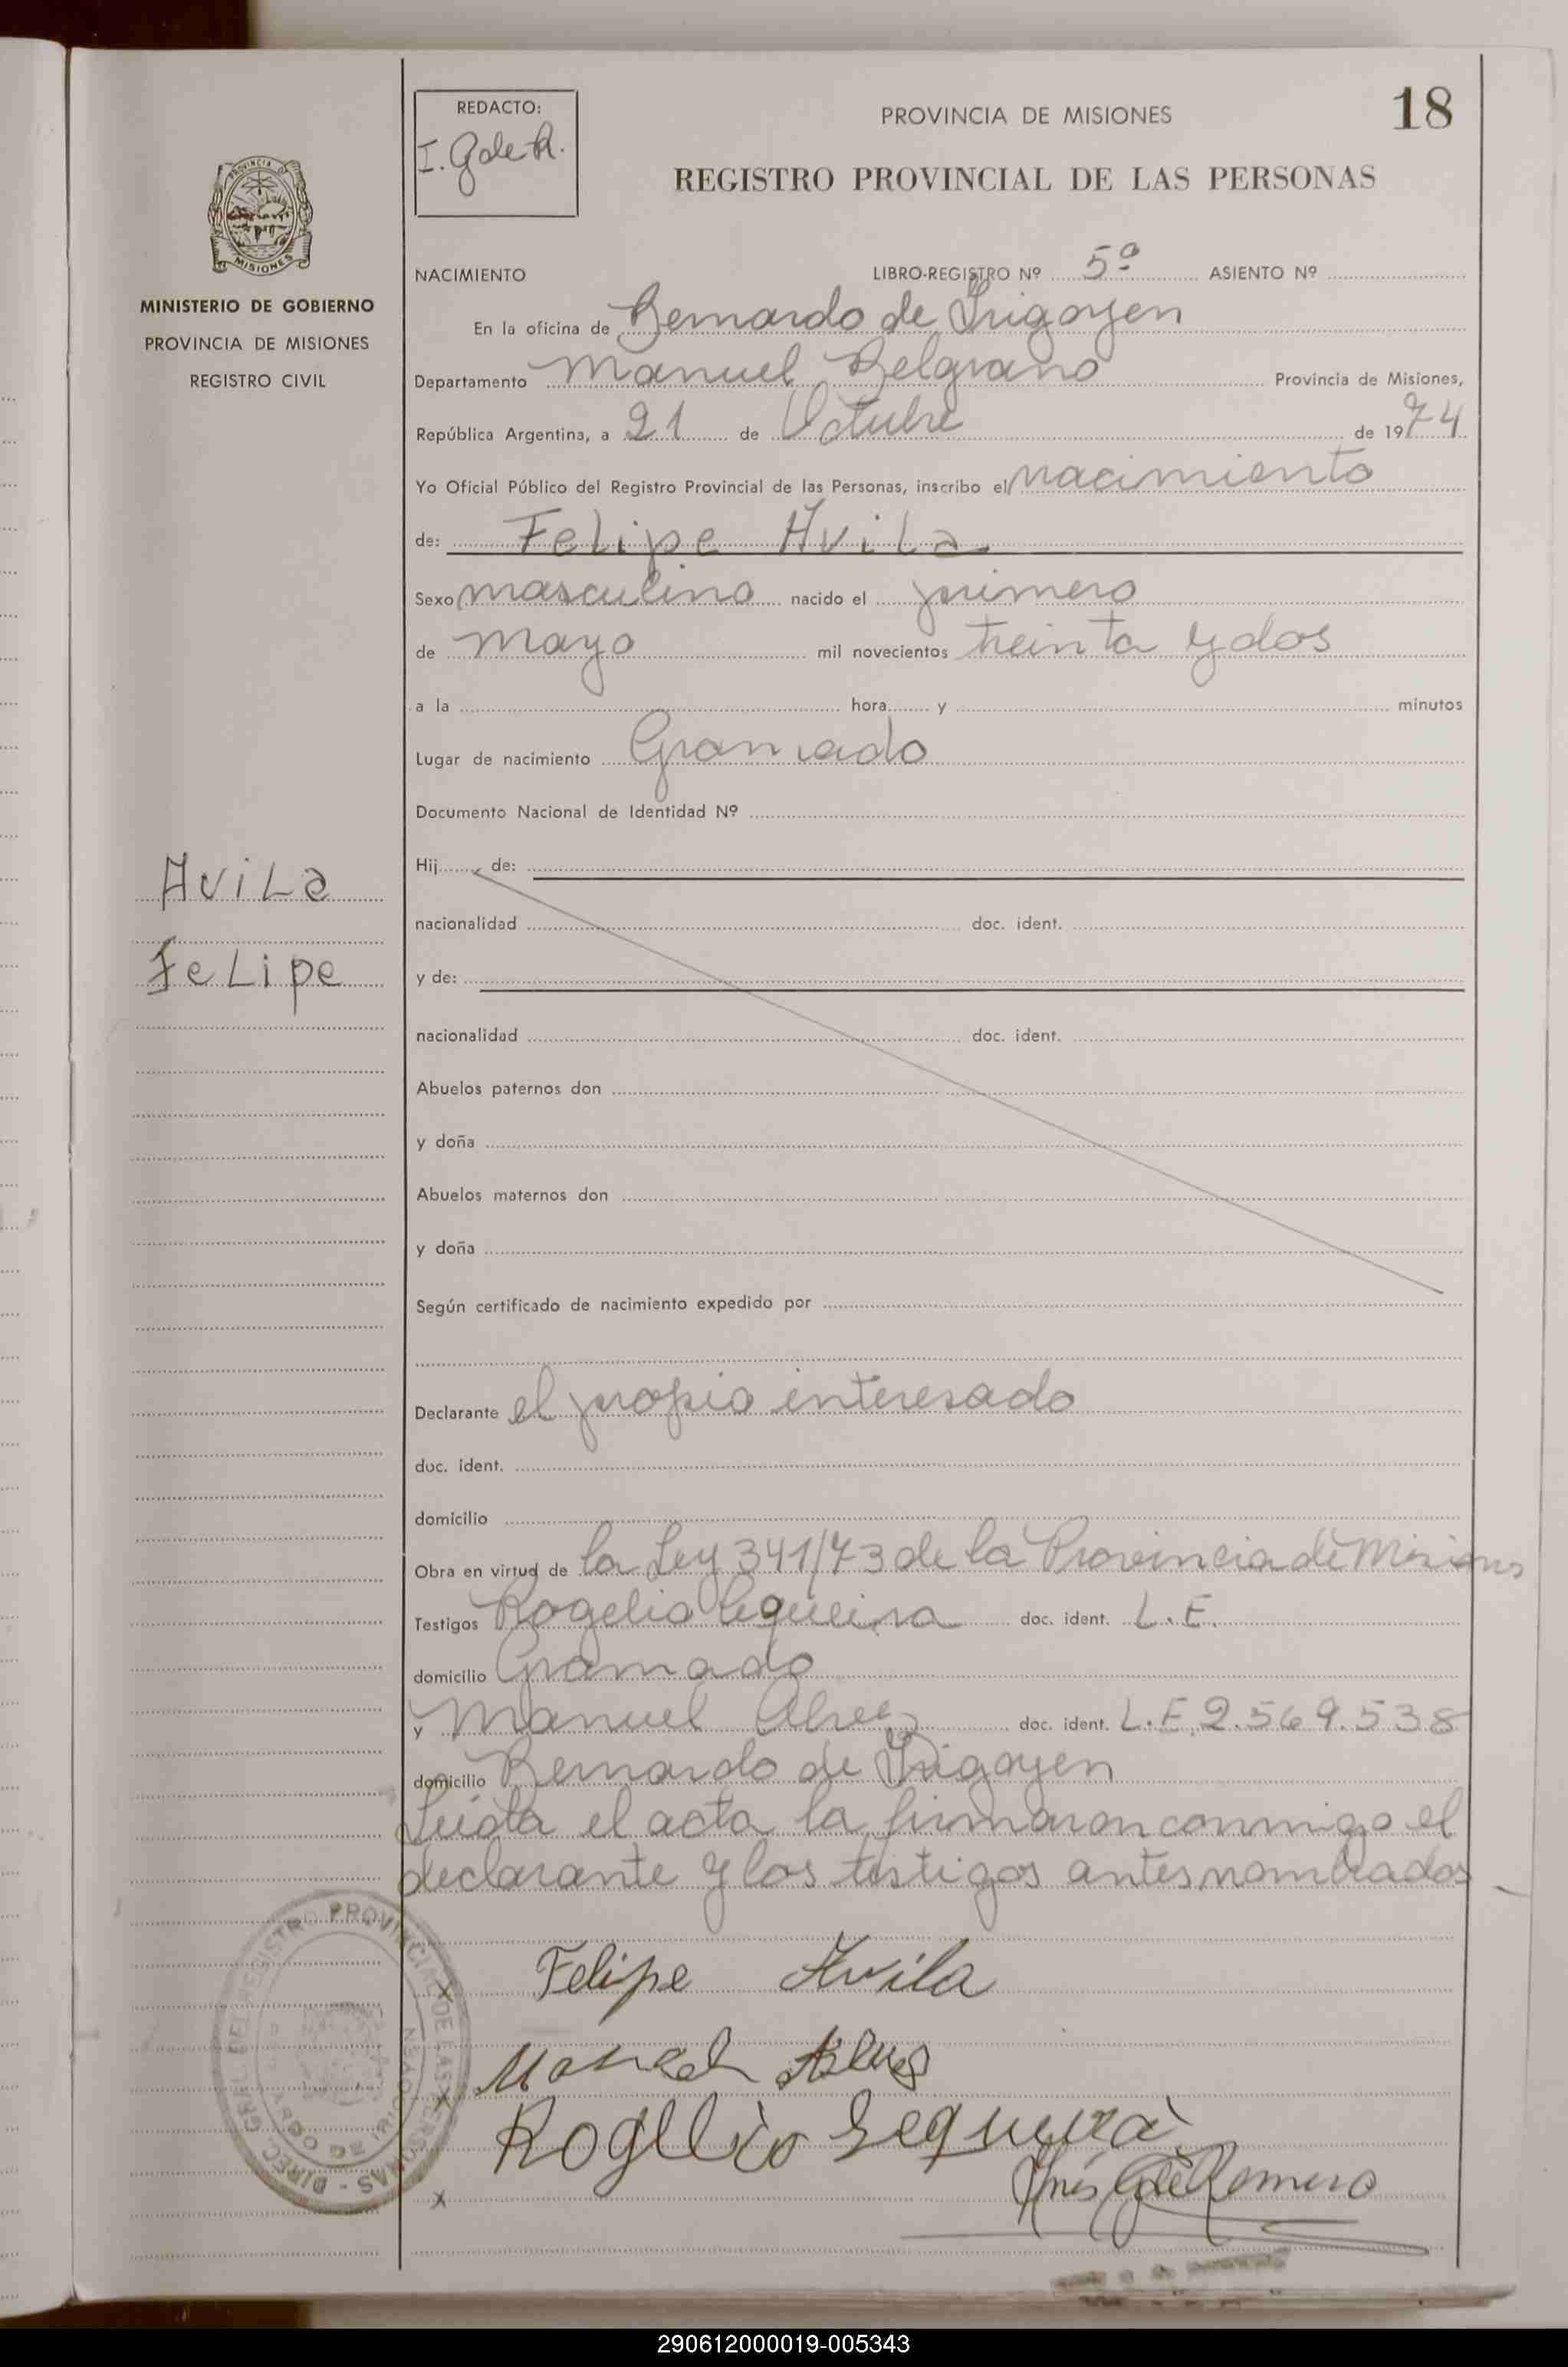 18
REDACTO:
I. G de R.
PROVINCIA DE MISIONES
REGISTRO PROVINCIAL DE LAS PERSONAS
PROVINCIA DE
MISIONES
MINISTERIO DE GOBIERNO
PROVINCIA DE MISIONES
REGISTRO CIVIL
NACIMIENTO LIBRO-REGISTRO Nº 5º ASIENTO Nº
En la oficina de Bernardo de Irigoyen
Departamento Manuel Belgrano Provincia de Misiones,
República Argentina, a 21 de Octubre de 1974
Yo Oficial Público del Registro Provincial de las Personas, inscribo el nacimiento
de: Felipe Avila
Sexo masculino nacido el primero
de mayo mil novecientos treinta y dos
a la hora y minutos
Lugar de nacimiento Gramado
Documento Nacional de Identidad Nº
Avila
Felipe
Hij de:
nacionalidad doc. ident.
y de:
nacionalidad doc. ident.
Abuelos paternos don
y doña
Abuelos maternos don
y doña
Según certificado de nacimiento expedido por
Declarante el propio interesado
doc. ident.
domicilio
Obra en virtud de la Ley 341/73 de la Provincia de Misiones
Testigos Rogelio Sequeira doc. ident. L.E.
domicilio Gramado
y Manuel Alvez doc. ident. L.E. 2.569.538
domicilio Bernardo de Irigoyen
Leída el acta la firmaron conmigo el
declarante y los testigos antes nombrados
x Felipe Avila
x Manuel Alves
Rogelio Sequeira
x Inés G de Romero
DIREC. GRAL. DEL REGISTRO PROVINCIAL DE LAS PERSONAS
290612000019-005343